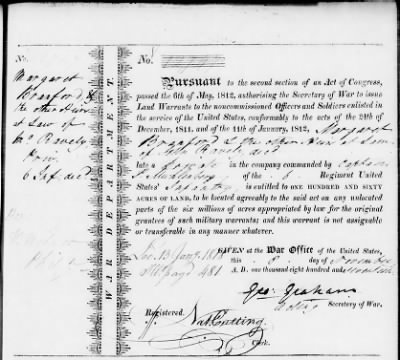 No.
No.
Margaret
Branford &
the other Heirs
at Law of
6 Inf decd
WAR DEPARTMENT.
Pursuant to the second section of an Act of Congress,
passed the 6th of May, 1812, authorising the Secretary of War to issue
Land Warrants to the noncommissioned Officers and Soldiers enlisted in
the service of the United States, conformably to the acts of the 24th
of December, 1811, and of the 11th of January, 1812, Margaret
Branford & the other Heirs at Law
of
late a in the company commanded by Captain
of the 6 Regiment United
States' Infantry is entitled to ONE HUNDRED AND SIXTY
ACRES OF LAND, to be located agreeably to the said act on any unlocated
parts of the six millions of acres appropriated by law for the original
grantees of such military warrants; and this warrant is not assignable
or transferable in any manner whatever.
GIVEN at the War Office of the United States,
this 8 day of November
A. D. one thousand eight hundred and
13 Jany. 1818
481
Geo: Graham
Acting Secretary of War.
Registered.
Nat Cutting
Clerk.